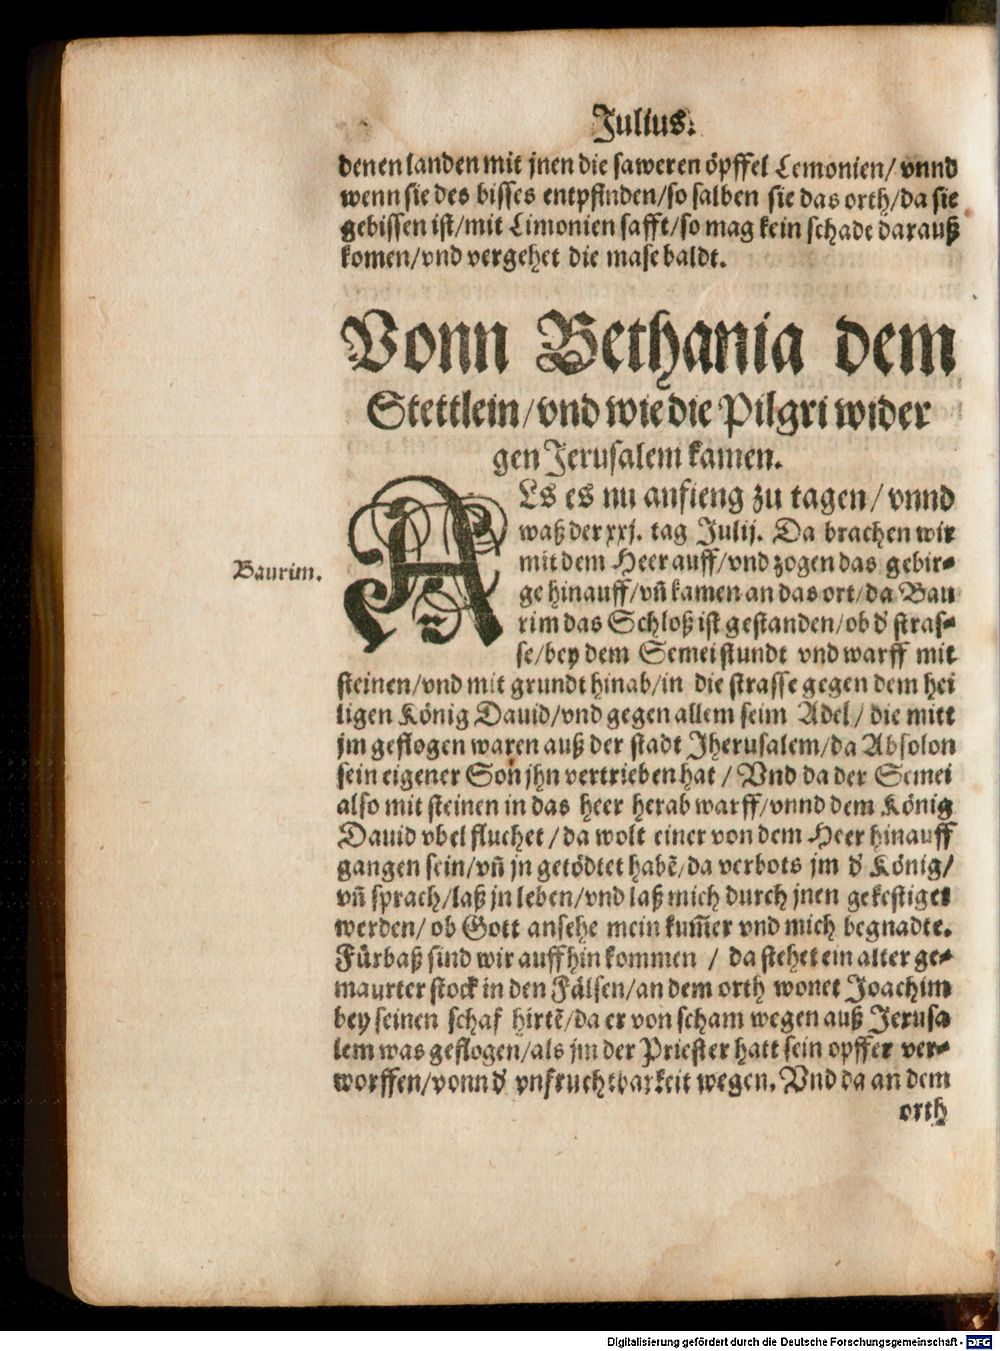 Julius.
denen landen mit jnen die saweren öpffel Lemonien/ vnnd
wenn sie des bisses entpfinden/so salben sie das orth/da sie
gebissen ist/mit Limonien safft/so mag kein schade darauß
komen/vnd vergehet die mase baldt.
Vonn Bethania dem
Stettlein/vnd wie die Pilgri wider
gen Jerusalem kamen.
ALs es nu anfieng zu tagen/ vnnd
waß der xxj. tag Julij. Da brachen wir
mit dem Heer auff/vnd zogen das gebir-
Baurim.
ge hinauff/vñ kamen an das ort/da Bau
rim das Schloß ist gestanden/ob d' stras-
se/bey dem Semei stundt vnd warff mit
steinen/vnd mit grundt hinab/in die strasse gegen dem hei
ligen König Dauid/vnd gegen allem seim Adel/ die mitt
jm geflogen waren auß der stadt Jherusalem/da Absolon
sein eigener Son jhn vertrieben hat / Vnd da der Semei
also mit steinen in das heer herab warff/vnnd dem König
Dauid vbel fluchet/da wolt einer von dem Heer hinauff
gangen sein/vñ jn getödtet habẽ/da verbots jm d' König/
vñ sprach/laß jn leben/vnd laß mich durch jnen gekestiget
werden/ ob Gott ansehe mein kum̃er vnd mich begnadte.
Fürbaß sind wir auffhin kommen / da stehet ein alter ge-
maurter stock in den Fälsen/an dem orth wonet Joachim
bey seinen schaf hirtẽ/da er von scham wegen auß Jerusa
lem was geflogen/als jm der Priester hatt sein opffer ver-
worffen/vonn d' vnfruchtbarkeit wegen. Vnd da an dem
orth
Digitalisierung gefördert durch die Deutsche Forschungsgemeinschaft - DFG